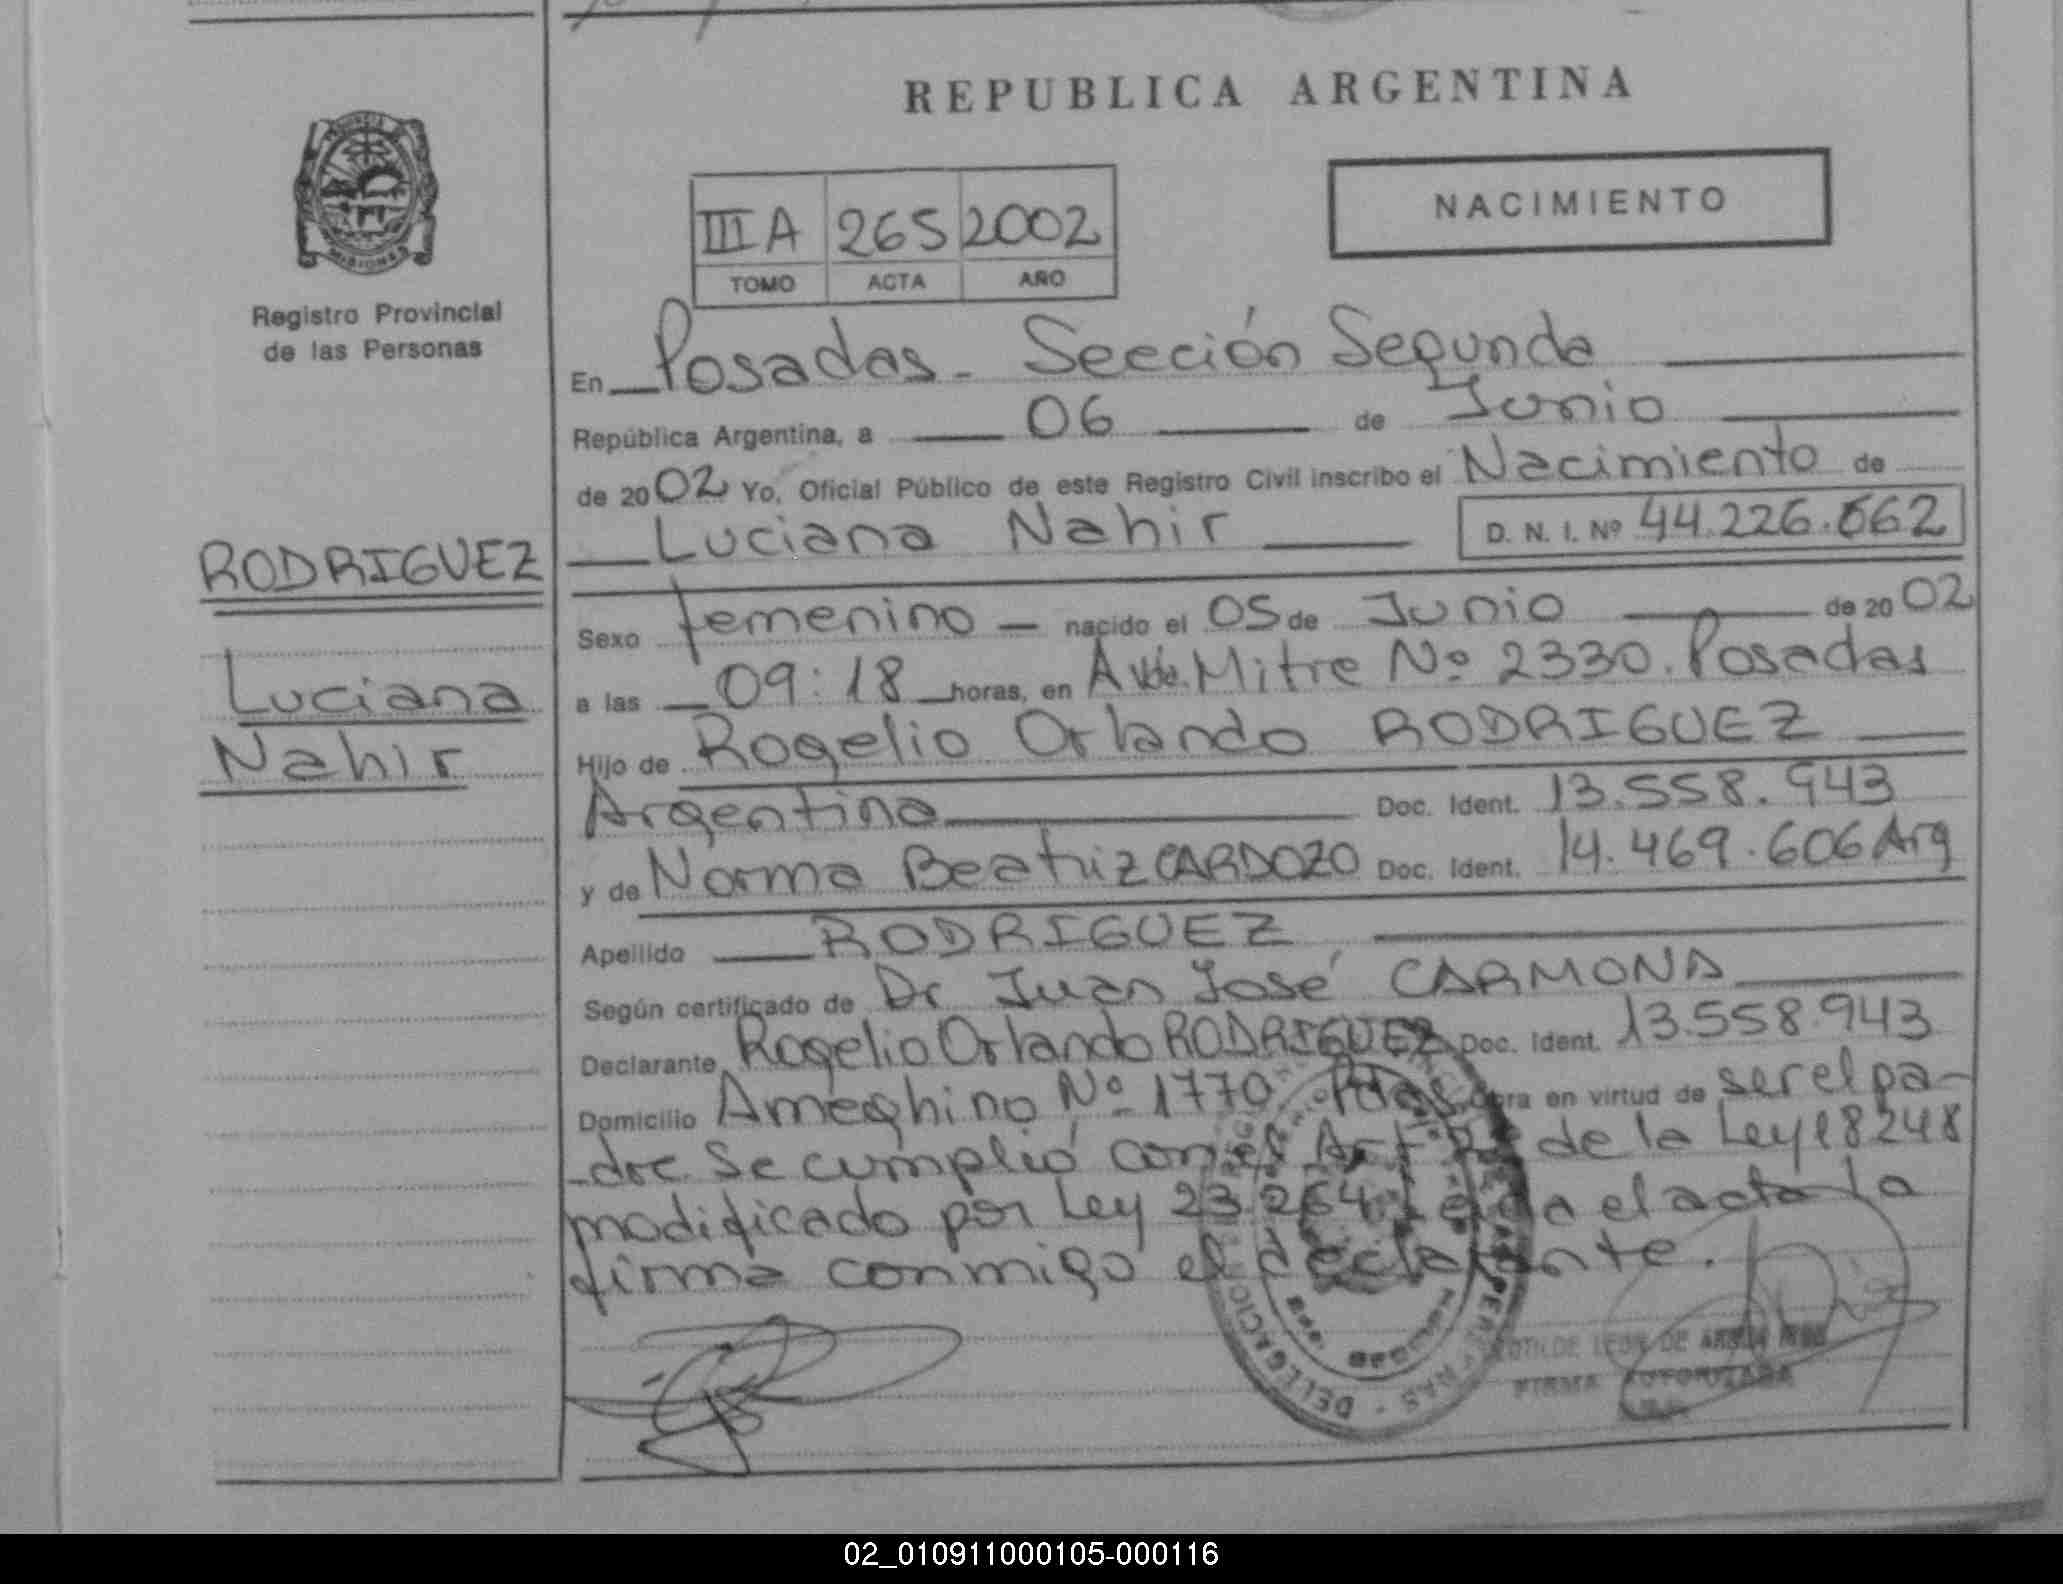 REPUBLICA ARGENTINA
NACIMIENTO
III A 265 2002
TOMO ACTA AÑO
PROVINCIA DE
MISIONES
Registro Provincial
de las Personas
RODRIGUEZ
Luciana
Nahir
En Posadas - Sección Segunda
República Argentina, a 06 de Junio
de 2002 Yo, Oficial Público de este Registro Civil inscribo el Nacimiento de
Luciana Nahir D. N. I. Nº 44.226.662
Sexo femenino - nacido el 05 de Junio de 2002
a las 09:18 horas, en Avda. Mitre Nº 2330. Posadas
Hijo de Rogelio Orlando RODRIGUEZ
Argentino Doc. Ident. 13.558.943
y de Norma Beatriz CARDOZO Doc. Ident. 14.469.606 Arg
Apellido RODRIGUEZ
Según certificado de Dr Juan José CARMONA
Declarante Rogelio Orlando RODRIGUEZ Doc. Ident. 13.558.943
Domicilio Ameghino Nº 1770 Pdas Obra en virtud de ser el pa-
-dre. Se cumplió con el Art de la Ley 18248
modificado por Ley 23.264. Leída el acta la
firma conmigo el declarante.
DE ARGUA
FIRMA AUTORIZADA
02_010911000105-000116